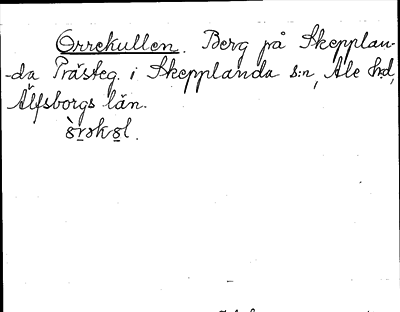 Orrekullen. Berg på Skepplan-
-da Prästeg. i Skepplanda s:n, Ale hd,
Älfsborgs län.